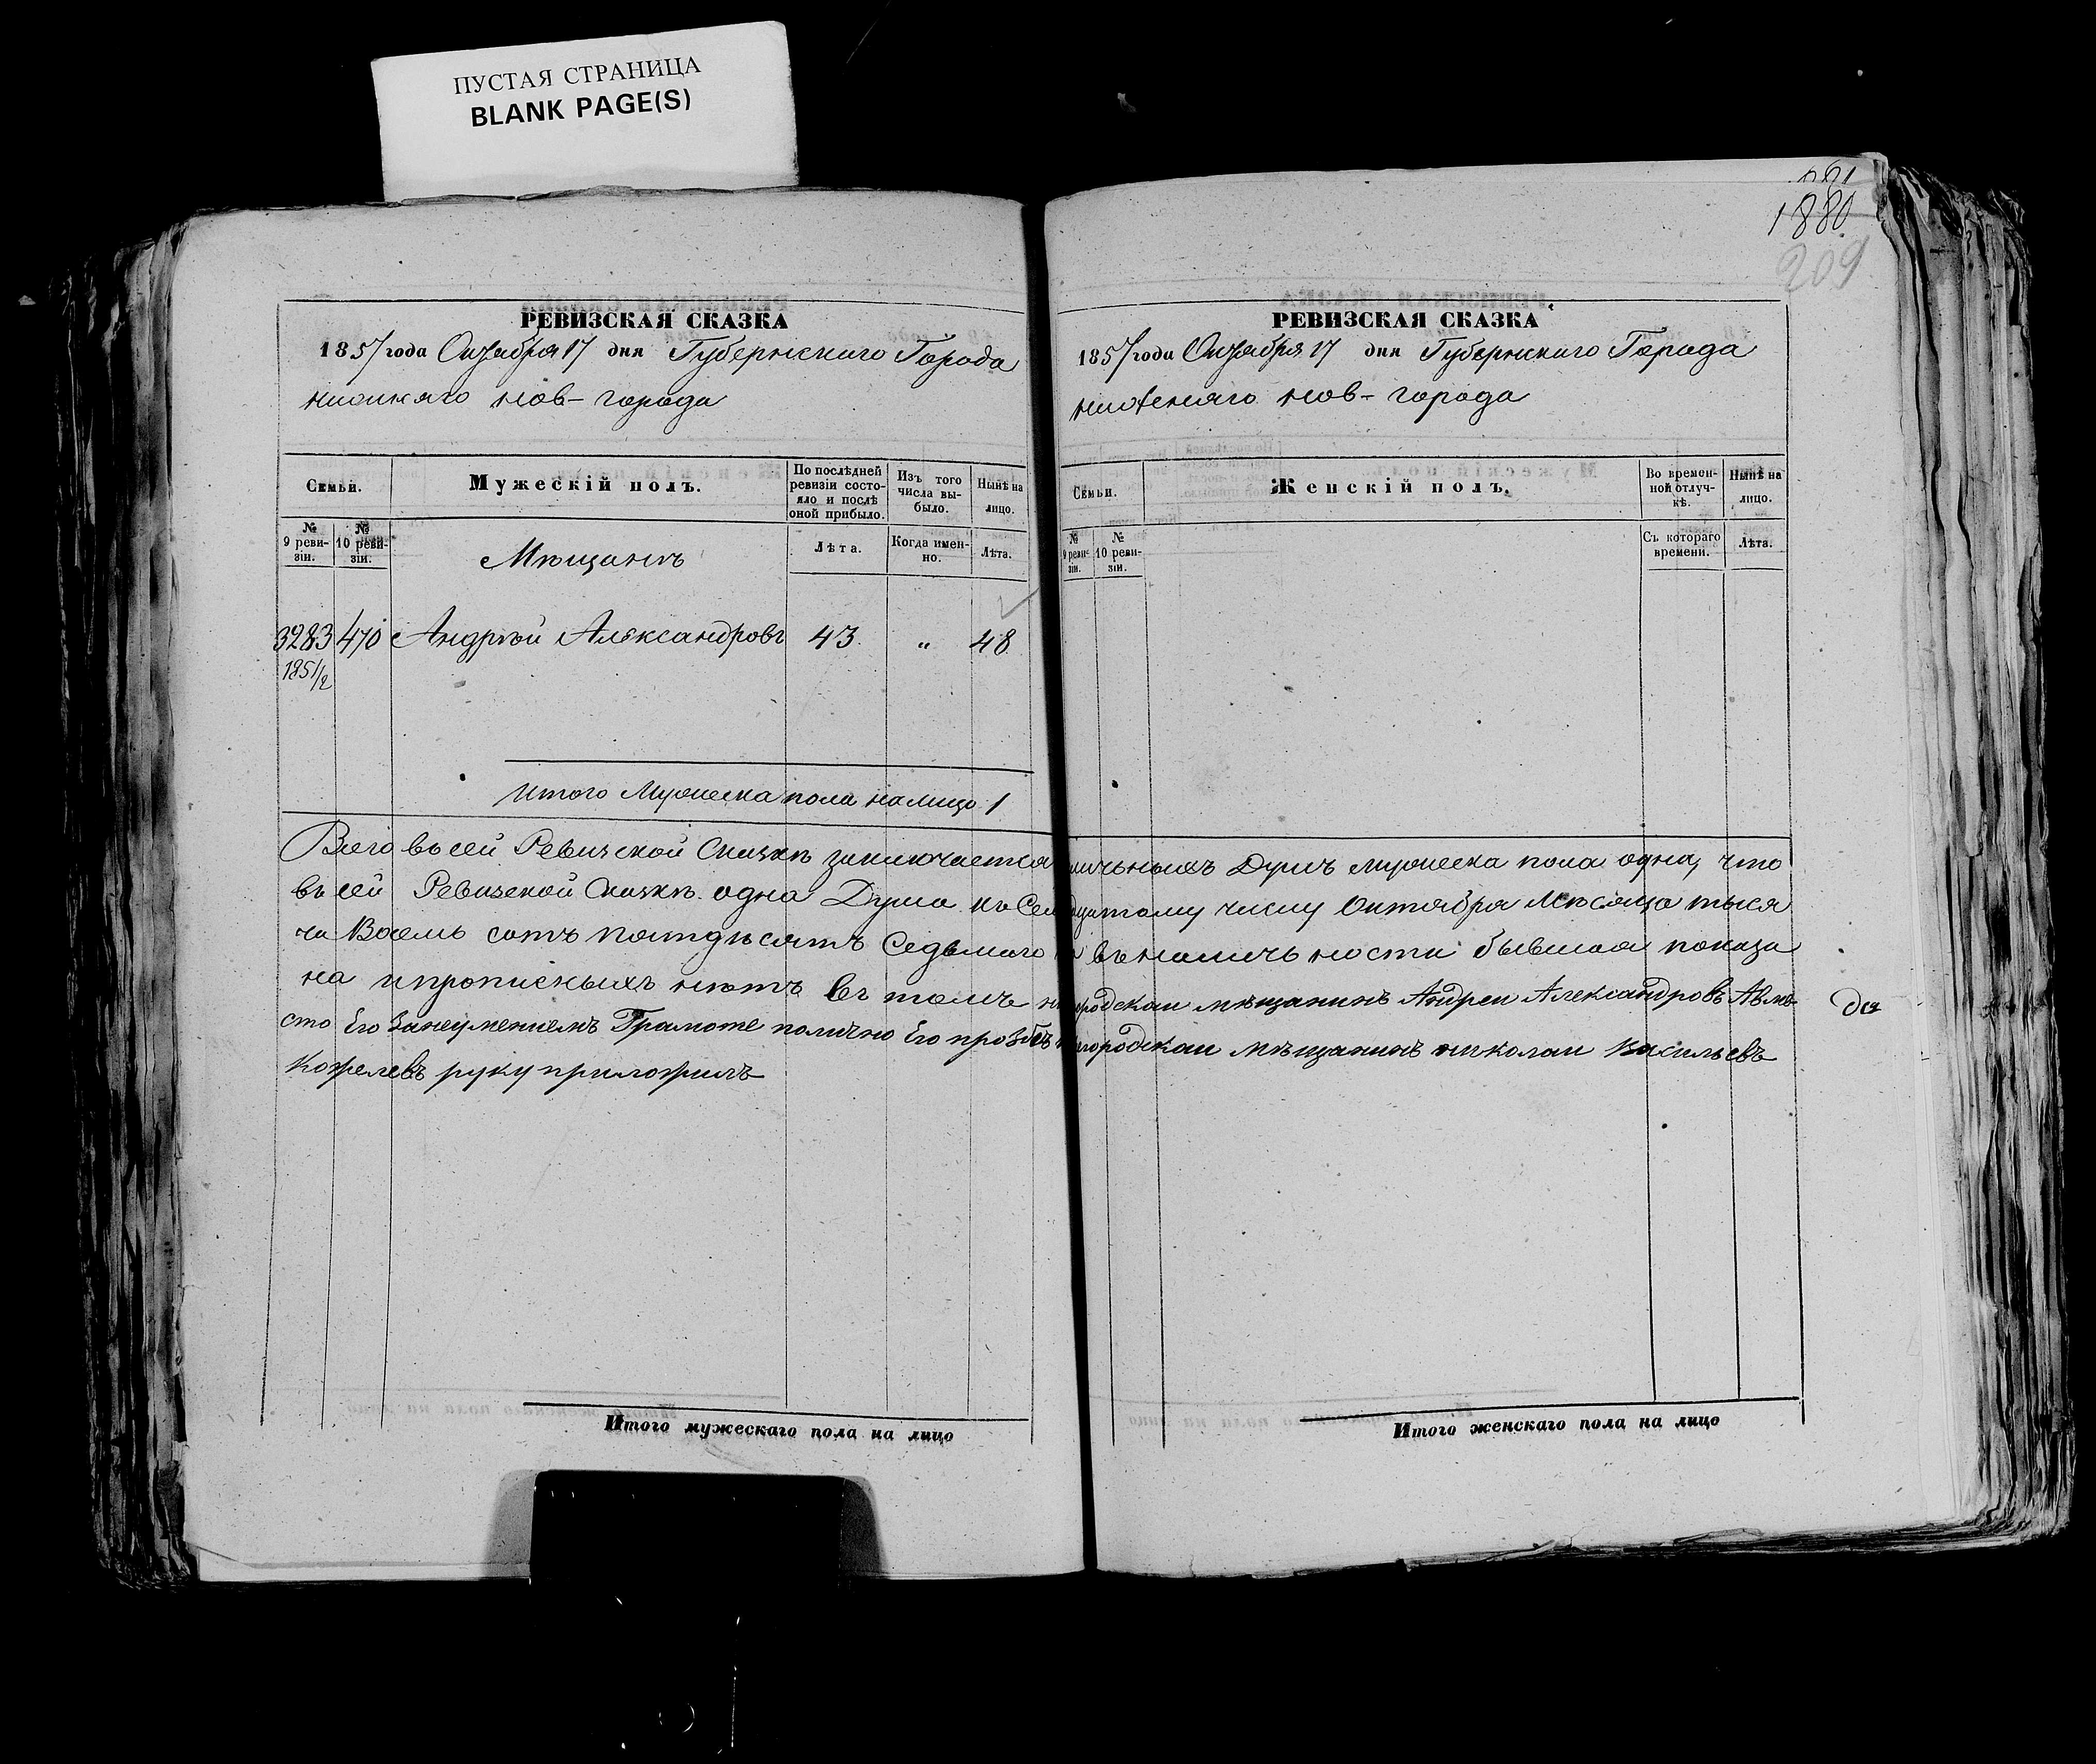 ПУСТАЯ СТРАНИЦА
BLANK PAGE(S)
1880
209
РЕВИЗСКАЯ СКАЗКА
1857 года Октября 17 дня Губернскаго Города
нижняго нов-города
Семьи.
Мужескій полъ.
По послѣдней ревизіи состояло и послѣ оной прибыло.
Изъ того числа выбыло.
Нынѣ на лицо.
№ 9 ревизіи.
№ 10 ревизіи.
Мѣщанъ
Лѣта.
Когда именно.
Лѣта.
3283 470 Андрѣй Александровъ 43. " 48
1851/2
Итого Мужеска пола налицо 1
РЕВИЗСКАЯ СКАЗКА
1857 года Октября 17 дня Губернскаго Города
нижняго нов-города
Семьи.
Женскій полъ.
Во временной отлучкѣ.
Нынѣ на лицо.
№ 9 ревизіи.
№ 10 ревизіи.
Съ котораго времени.
Лѣта.
Всего въ сей Ревизской Сказкѣ заключается личьныхъ Душъ мужеска пола одна, что
въ сей Ревизской Сказкѣ одна Душа къ Семнадцатому числу Октября Мѣсяца тыся
ча Восемь сотъ пятдѣсятъ Седьмаго въ наличьности бывшая показа
на ипрописныхъ нѣтъ въ томъ городскаи мѣщанинъ Андреи Александровъ Авме-
сто Его Занеумениемъ Грамоте полично Его прозбѣ городскаи мѣщанинъ николаи васильевъ
Кожелевъ руку приложилъ
Итого мужескаго пола на лицо
Итого женскаго пола на лицо